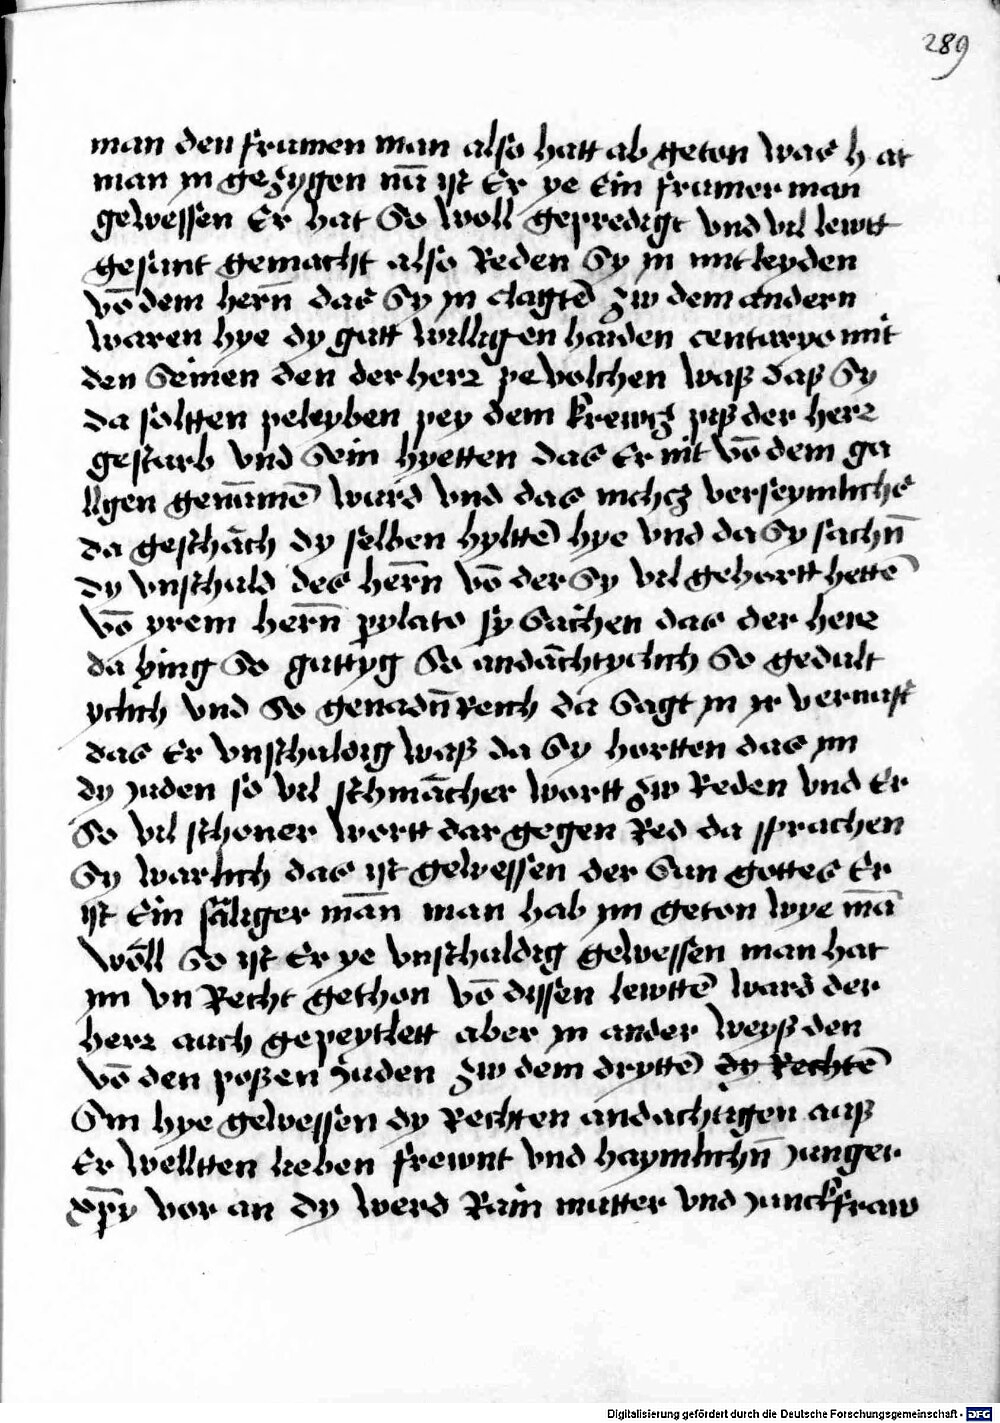 289
man den frumen man also hatt ab geton was h at
man in gezygen nū ist Er ye Ein frumer man
gewessen Er hat So woll gepredigt vnd vil lewtt
gesunt gemacht also Reden Sy in mitleyden
vō dem hern̄ das Sy in clagtē zw dem andern
waren hye dy gutt willigen haiden centaryo mit
den Seinen den der herr pevolchen waß daß Sy
da soltten peleyben pey dem krewcz piß der herr
gestarb vnd Sein hyetten das Er nit vō dem ga
llgen genūmē wurd vnd das nichcz verseymlichs
da geschäch dy selben hylttē hye vnd da Sy sachn̄
dy vnschuld des her̄n vō der Sy vil gehortt hettē
vō yrem hern̄ pylato sy Sachen das der herr
da hing So guttyg So andächtyclich So gedult
yclich vnd So genadn̄ Reich da Sagt in ir vernuft
das Er vnschuldig waß da Sy hortten das im
dy juden so vil schmächer wortt zw Reden vnd Er
So vil schoner wortt dar gegen Red da sprachen
Sy warlich das ist gewessen der Sun gottes Er
ist Ein säliger mān man hab im geton wye mā
wöll So ist Er ye vnschuldig gewessen man hat
im vn Recht gethon vō dissen lewttē ward der
herr auch gepeytlett aber in ander weyß den
vō den poßen juden zw dem dryttē dy Rechtē
Sin hye gewessen dy Rechten andachtigen auß
Er welltten lieben frewnt vnd haymlichn̄ junger
xp̄y vor an dy werd Rain mutter vnd junckfraw
Digitalisierung gefördert durch die Deutsche Forschungsgemeinschaft - DFG